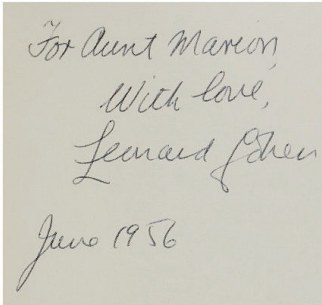 For Aunt Marion,
With love,
Leonard Cohen
June 1956